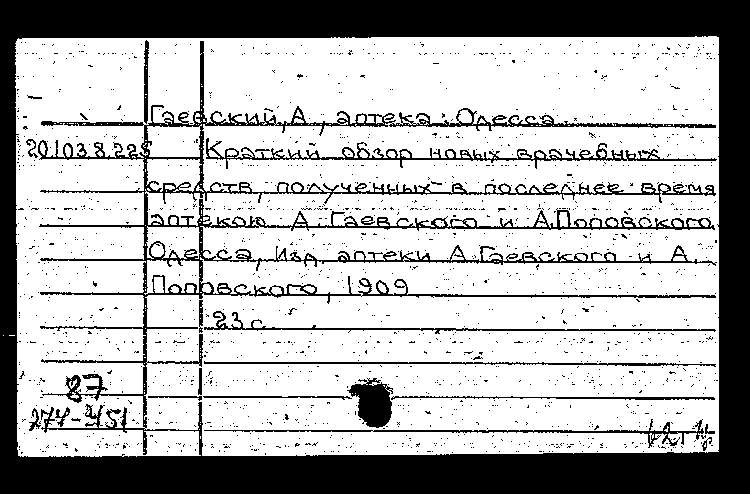 Гаевский, А, аптека. Одесса.
20.103.8.228 Краткий обзор новых врачебных
средств, полученных в последнее время
аптекою А. Гаевского и А.Поповского.
Одесса, Изд. аптеки А.Гаевского и А.
Поповского, 1909
23 с.
87
274-451